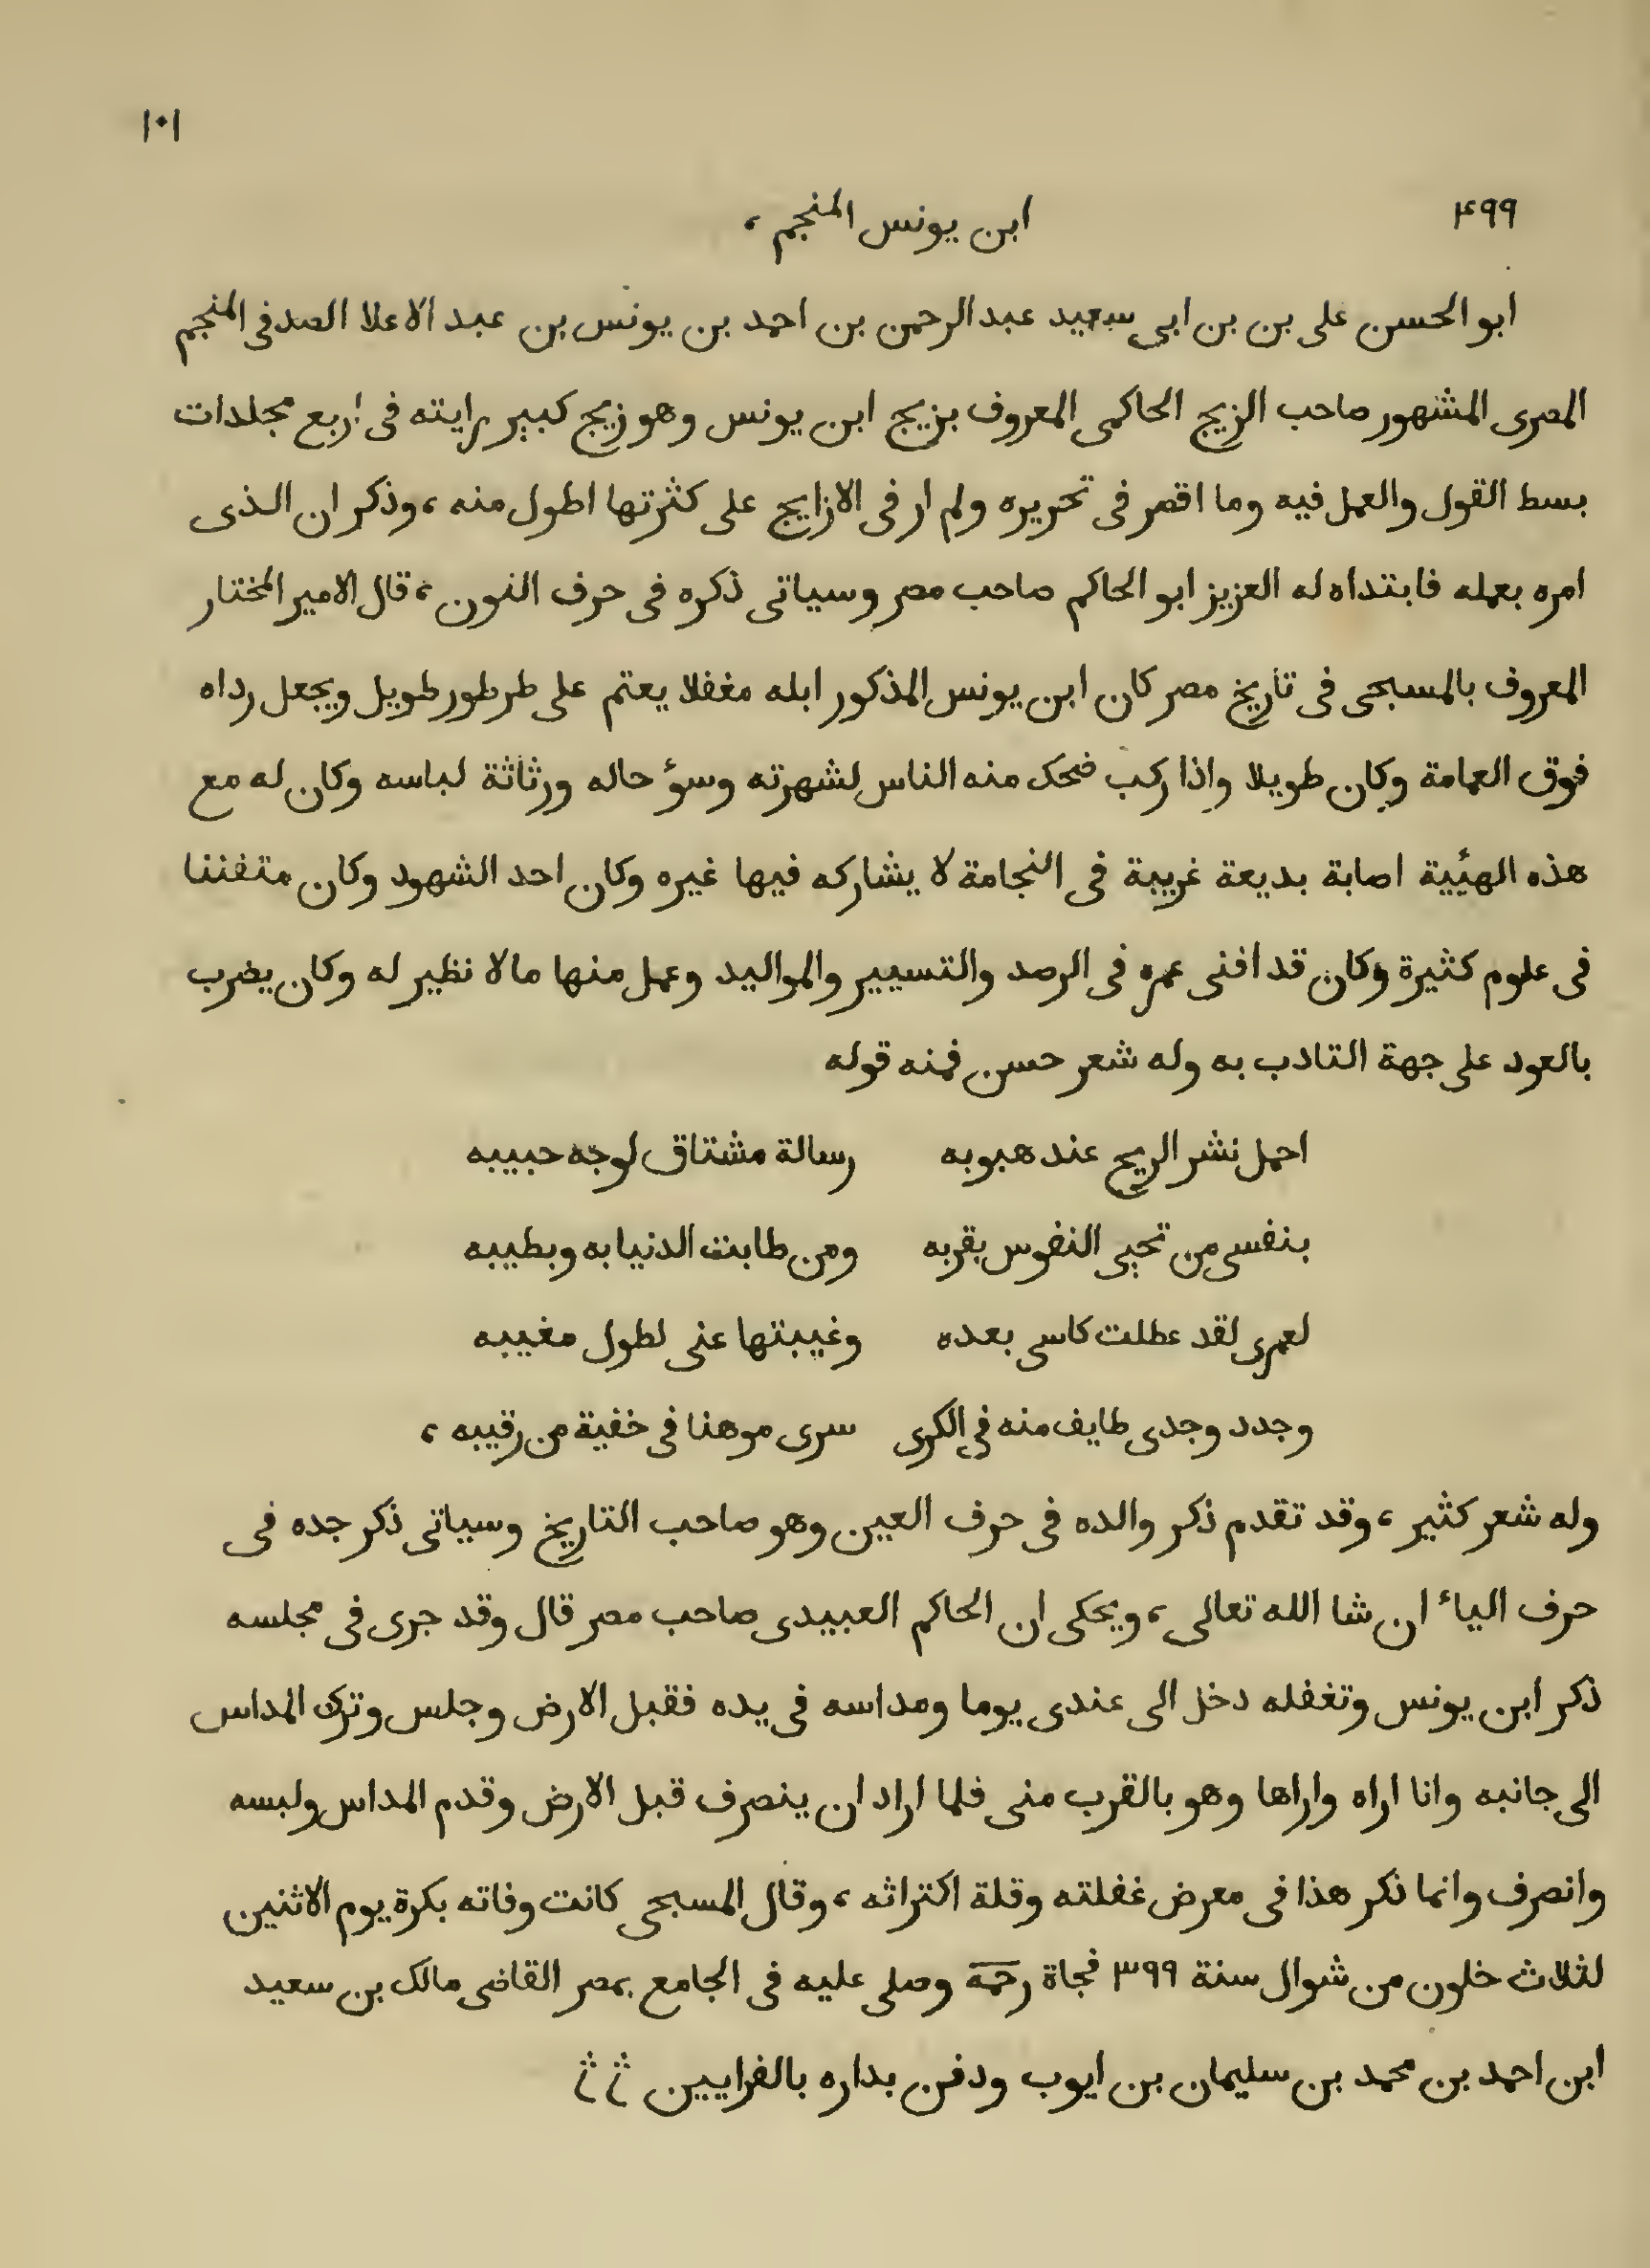 ١٠١
٤٩٩ ابن يونس المنجم ،
ابو الحسن على بن بن ابى سعيد عبد الرحمن بن احمد بن يونس بن عبد الاعلا الصدفى المنجم
المصرى المشهور صاحب الزيج الحاكمى المعروف بزيج ابن يونس وهو زيج كبير رايته فى اربع مجلدات
بسط القول والعمل فيه وما اقصر فى تحريره ولم ار فى الازايج على كثرتها اطول منه ، وذكر ان الذى
امره بعمله فابتداه له العزيز ابو الحاكم صاحب مصر وسياتى ذكره فى حرف النون ، قال الامير المختار
المعروف بالمسبحى فى تاريخ مصر كان ابن يونس المذكور ابله مغفلا يعتم على طرطور طويل ويجعل رداه
فوق العمامة وكان طويلا واذا ركب ضحك منه الناس لشهرته وسؤ حاله ورثاثة لباسه وكان له مع
هذه الهئية اصابة بديعة غريبة فى النجامة لا يشاركه فيها غيره وكان احد الشهود وكان متفننا
فى علوم كثيرة وكان قد افنى عمره فى الرصد والتسيير والمواليد وعمل منها ما لا نظير له وكان يضرب
بالعود على جهة التادب به وله شعر حسن فمنه قوله
احمل نشر الريح عند هبوبه رسالة مشتاق لوجه حبيبه
بنفسى من تحيى النفوس بقربه ومن طابت الدنيا به وبطيبه
لعمرى لقد عطلت كاسى بعده وغيبتها عنى لطول مغيبه
وجدد وجدى طايف منه فى الكرى سرى موهنا فى خفية من رقيبه ،
وله شعر كثير ، وقد تقدم ذكر والده فى حرف العين وهو صاحب التاريخ وسياتى ذكر جده فى
حرف الياء ان شا الله تعالى ، ويحكى ان الحاكم العبيدى صاحب مصر قال وقد جرى فى مجلسه
ذكر ابن يونس وتغفله دخل الى عندى يوما ومداسه فى يده فقبل الارض وجلس وترك المداس
الى جانبه وانا اراه واراها وهو بالقرب منى فلما اراد ان ينصرف قبل الارض وقدم المداس ولبسه
وانصرف وانما ذكر هذا فى معرض غفلته وقلة اكتراثه ، وقال المسبحى كانت وفاته بكرة يوم الاثنين
لثلاث خلون من شوال سنة ٣٩٩ فجاة رحمه وصلى عليه فى الجامع بمصر القاضى مالك بن سعيد
ابن احمد بن محمد بن سليمان بن ايوب ودفن بداره بالفرايين